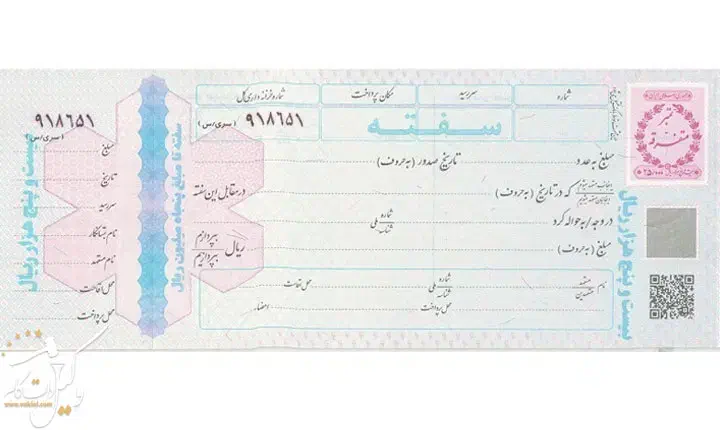 شماره
سررسید
مکان پرداخت
شماره خزانه‌داری کل
سفته
۹۱۸۶۵۱
(سری/س)
تمبر
متفرقه
مبلغ به عدد
تاریخ صدور (به حروف)
که در تاریخ (به حروف)
در مقابل این سفته
در وجه/به حواله کرد
شماره ملی
شناسه
مبلغ (به حروف)
ریال
بپردازم
بپردازیم
نام
متعهد
متعهدین
شماره ملی
شناسه
محل اقامت
محل پرداخت
امضاء
بیست و پنج هزار ریال
سفته تا مبلغ پنجاه میلیون ریال
۹۱۸۶۵۱
(سری/س)
مبلغ
تاریخ
سررسید
نام بستانکار
نام متعهد
محل اقامت
محل پرداخت
بیست و پنج هزار ریال
www.vakiel.com